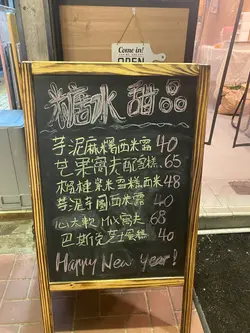 Come in!
OPEN
糖水 甜品
芋泥麻糬西米露 40
芒果窩夫配雪糕 65
榴槤果米雪糕西米 48
芋泥芋圓西米露 40
心太軟 MIX 窩夫 68
巴斯克芝士蛋糕 40
Happy New Year!